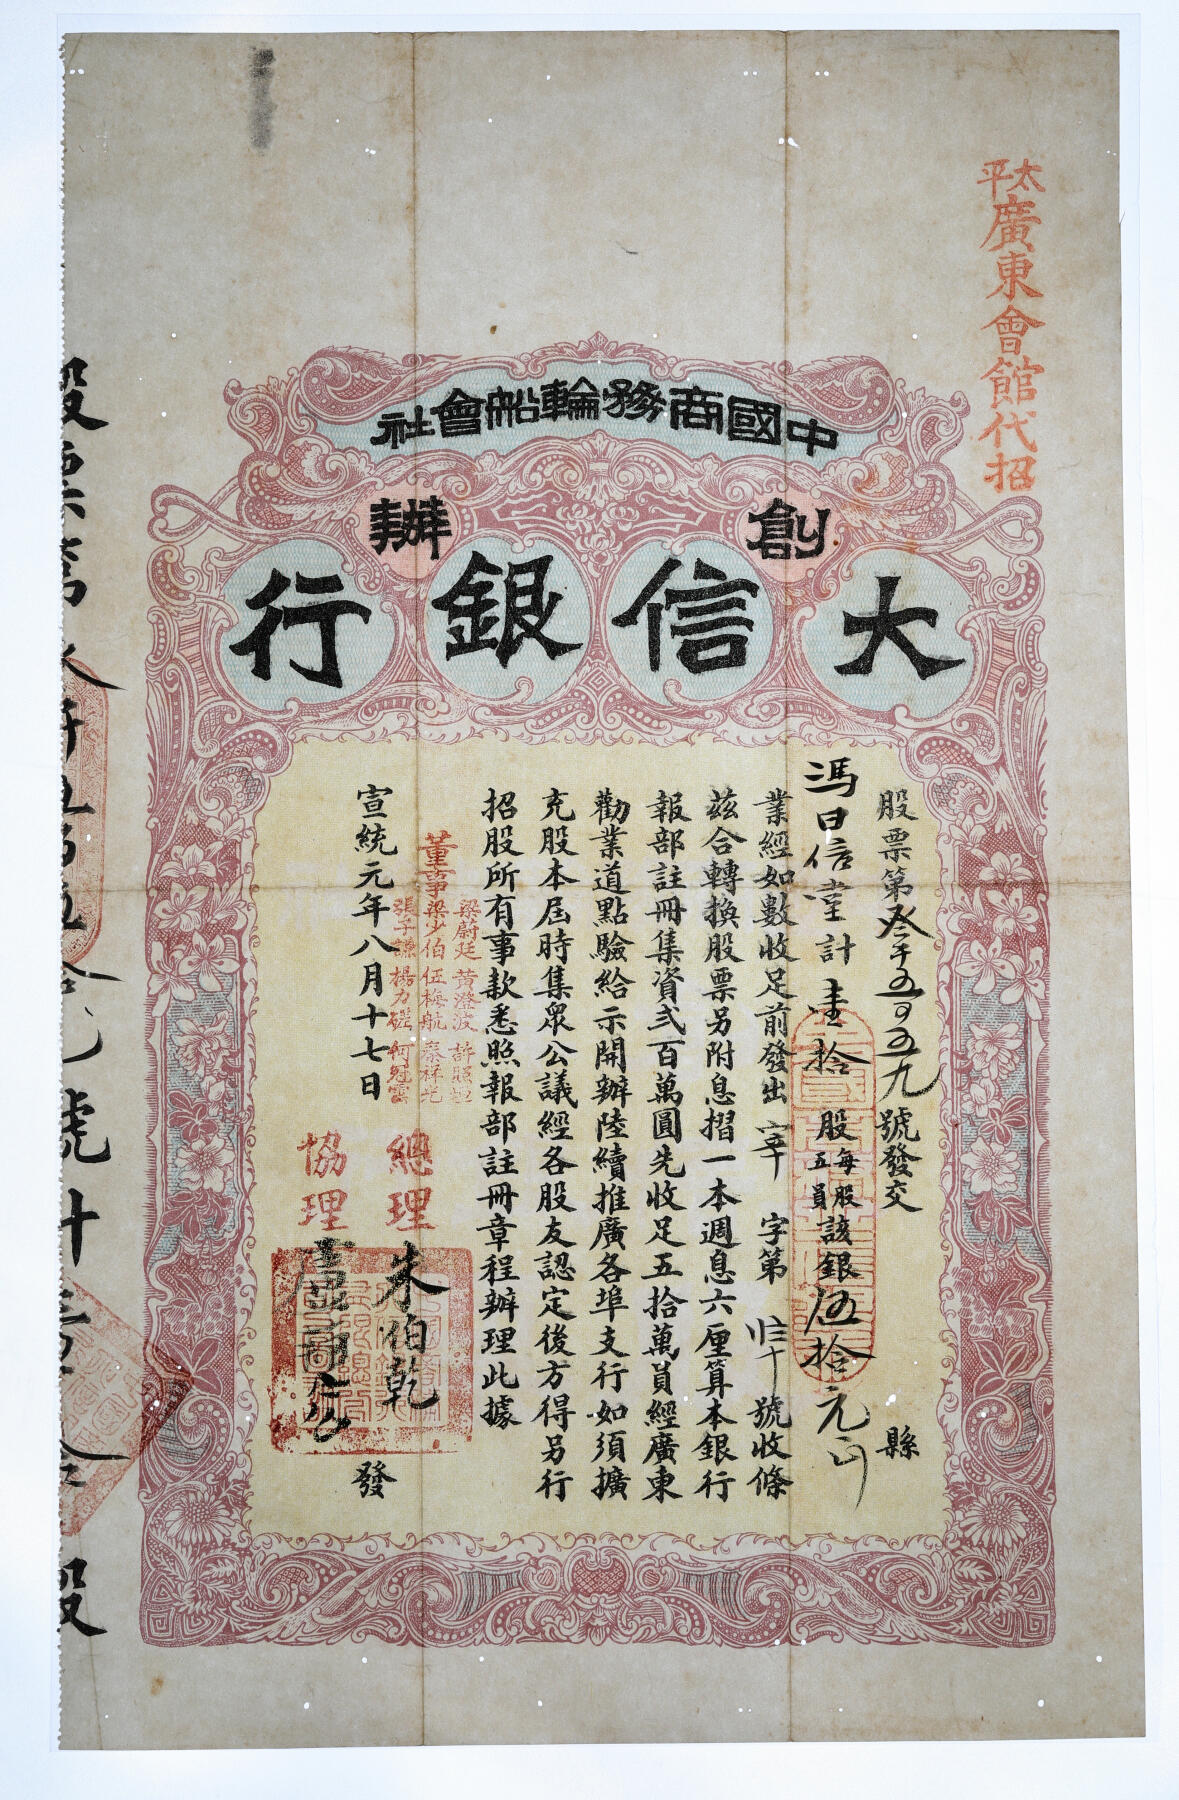 太平廣東會館代招
中國商務輪船會社
創辦
大信銀行
股票第叁千五百五十九號發交 縣
馮日信堂計壹拾股每股五員該銀伍拾元正
業經如數收足前發出 字第 號收條
茲合轉換股票另附息摺一本週息六厘算本銀行
報部註冊集資弍百萬圓先收足五拾萬員經廣東
勸業道點驗給示開辦陸續推廣各埠支行如須擴
充股本屆時集眾公議經各股友認定後方得另行
招股所有事款悉照報部註冊章程辦理此據
董事
梁蔚廷 黃澄波 許照
梁少伯 伍梅航 秦祥光
張子謙 楊力磋 何冠雲
宣統元年八月十七日 發
總理 朱伯乾
協理